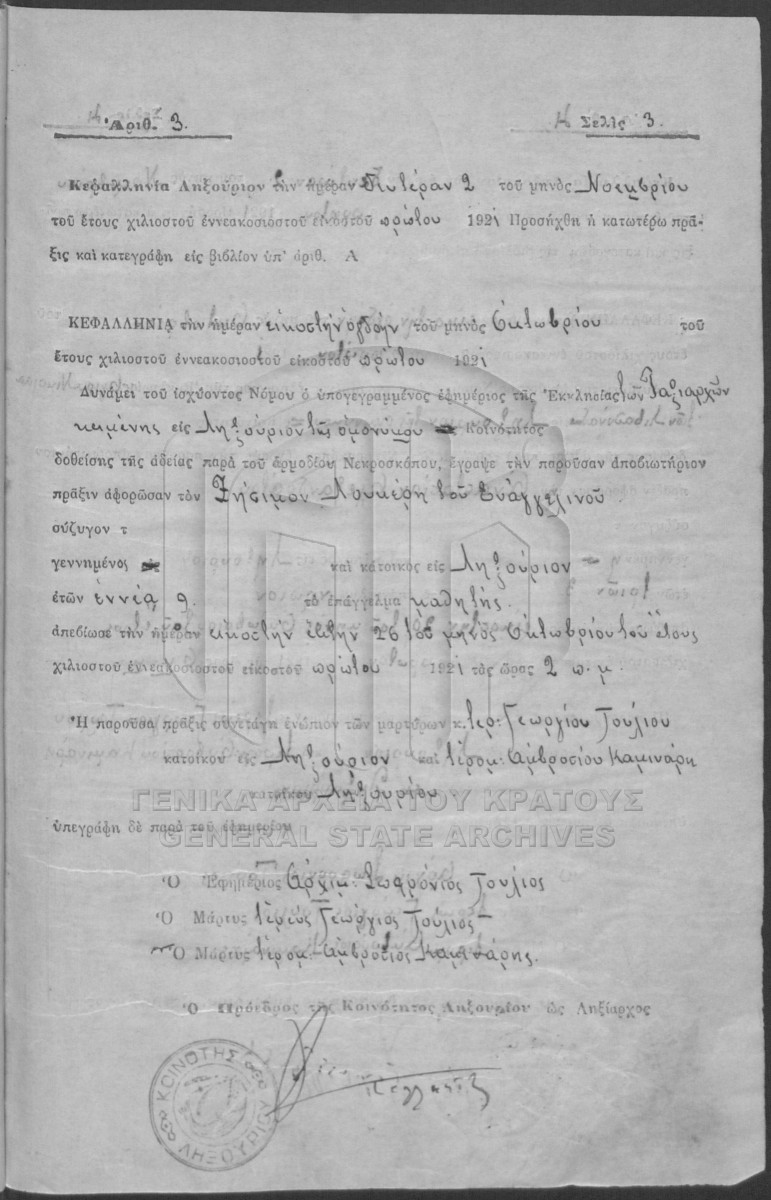 Ἀριθ. 3.
Σελὶς 3.
Κεφαλληνία Ληξούριον τὴν ἡμέραν δευτέραν 2 τοῦ μηνὸς Νοεμβρίου
τοῦ ἔτους χιλιοστοῦ ἐννεακοσιοστοῦ εἰκοστοῦ πρώτου 1921 Προσήχθη ἡ κατωτέρω πρᾶ-
ξις καὶ κατεγράφη εἰς βιβλίον ὑπ' ἀριθ. Α
ΚΕΦΑΛΛΗΝΙΑ τὴν ἡμέραν εἰκοστὴν ὀγδόην τοῦ μηνὸς Ὀκτωβρίου τοῦ
ἔτους χιλιοστοῦ ἐννεακοσιοστοῦ εἰκοστοῦ πρώτου 1921
Δυνάμει τοῦ ἰσχύοντος Νόμου ὁ ὑπογεγραμμένος ἐφημέριος τῆς Ἐκκλησίας τῶν Ταξιαρχῶν
κειμένης εἰς Ληξούριον τῆς ὁμονύμου Κοινότητος
δοθείσης τῆς ἀδείας παρὰ τοῦ ἁρμοδίου Νεκροσκόπου, ἔγραψε τὴν παροῦσαν ἀποβιωτήριον
πρᾶξιν ἀφορῶσαν τὸν Ζήσιμον Λουκέρη τοῦ Εὐαγγελινοῦ.
σύζυγον τ
γεννημένος καὶ κάτοικος εἰς Ληξούριον
ἐτῶν ἐννέα 9. τὸ ἐπάγγελμα μαθητής.
ἀπεβίωσε τὴν ἡμέραν εἰκοστὴν ἕκτην 26 τοῦ μηνὸς Ὀκτωβρίου τοῦ ἔτους
χιλιοστοῦ ἐννεακοσιοστοῦ εἰκοστοῦ πρώτου 1921 τὰς ὥρας 2 π.μ.
Ἡ παροῦσα πρᾶξις συνετάγη ἐνώπιον τῶν μαρτύρων κ. ἱερ: Γεωργίου Τούλιου
κατοίκου εἰς Ληξούριον καὶ ἱερομ: Ἀμβροσίου Καμινάρη
κατοίκου Ληξουρίου.
ὑπεγράφη δὲ παρὰ τοῦ ἐφημερίου
ΓΕΝΙΚΑ ΑΡΧΕΙΑ ΤΟΥ ΚΡΑΤΟΥΣ
GENERAL STATE ARCHIVES
Ὁ Ἐφημέριος Ἀρχιμ: Σωφρόνιος Τούλιος
Ὁ Μάρτυς ἱερεὺς Γεώργιος Τούλιος
Ὁ Μάρτυς ἱερομ: Ἀμβρόσιος Καμινάρης.
Ὁ Πρόεδρος τῆς Κοινότητος Ληξουρίου ὡς Ληξίαρχος
ΚΟΙΝΟΤΗΣ ΛΗΞΟΥΡΙΟΥ